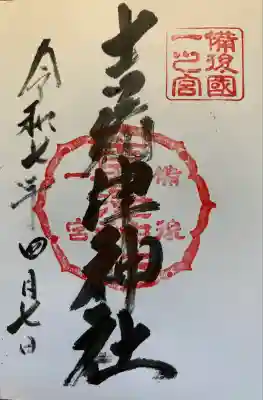 備後國
一之宮
吉備津神社
令和七年四月七日